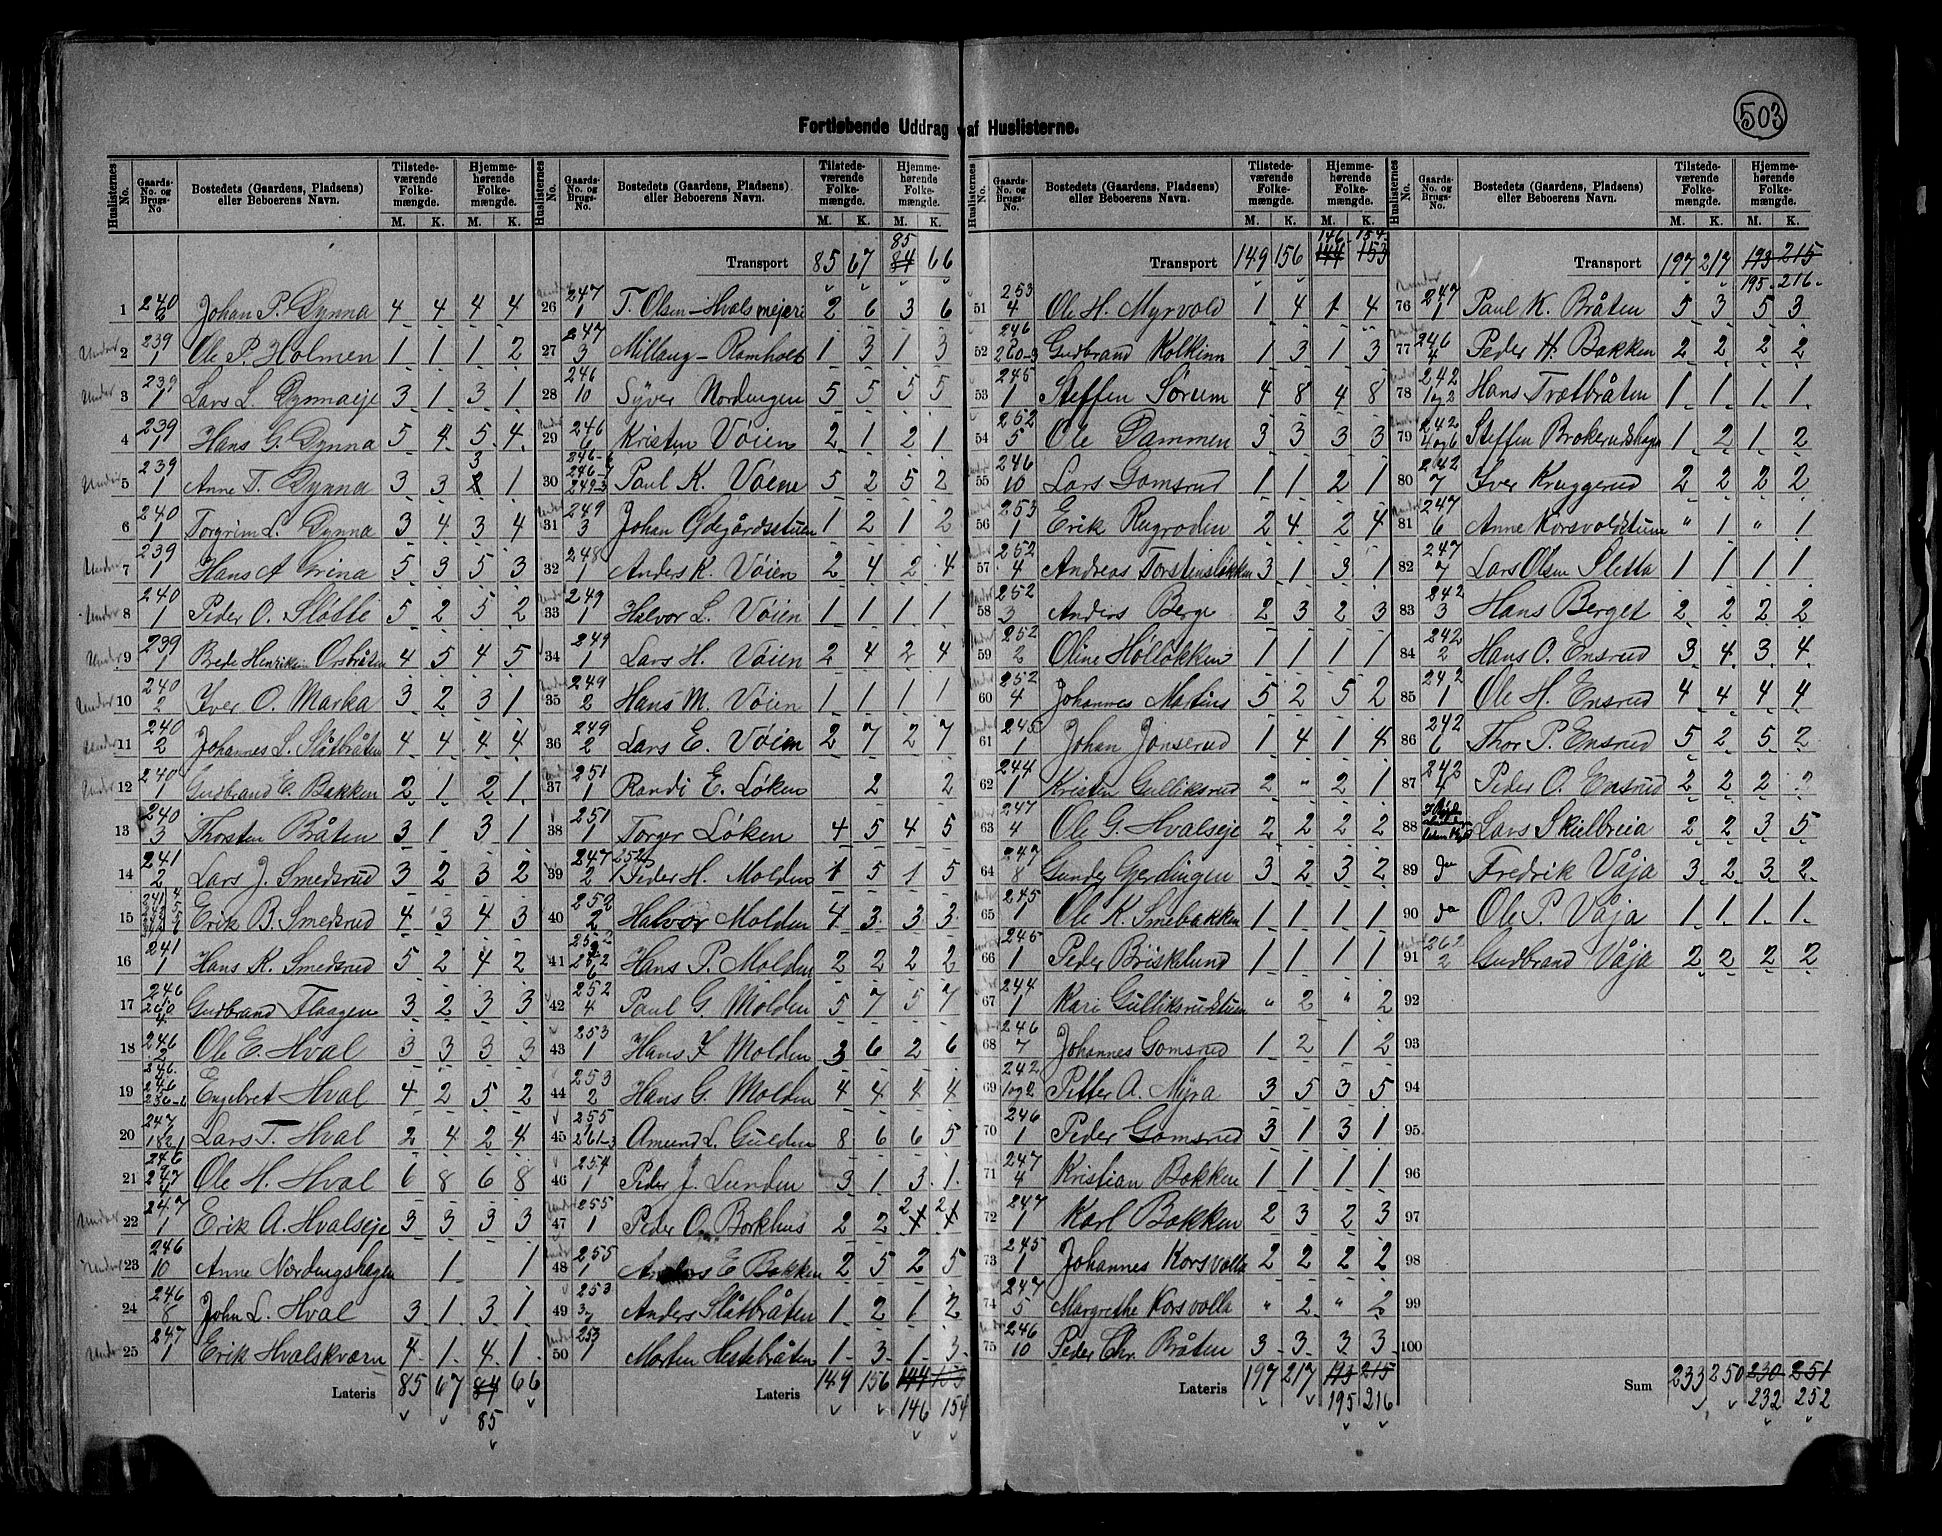 503
Fortløbende Uddrag af Huslisterne.
Huslisternes No. Gaards-No. og Brugs-No. Bostedets (Gaardens, Pladsens) eller Beboerens Navn. Tilstedeværende Folkemængde. M. K. Hjemmehørende Folkemængde. M. K.
1 240 Johan P. Dynna 4 4 4 4
Under 2 239 1 Ole P. Holmen 1 1 1 2
Under 3 239 1 Lars L. Dynnaeje 3 1 3 1
4 239 1 Hans G. Dynna 5 4 5 4
Under 5 239 1 Anne T. Dynna 3 3 3 1
6 240 1 Torgrim L. Dynna 3 4 3 4
Under 7 239 1 Hans A Grina 5 3 5 3
Under 8 240 1 Peder O. Sløtte 5 2 5 2
Under 9 239 1 Brede Henriksen Orsbråten 4 5 4 5
Under 10 240 2 Iver O. Marka 3 2 3 1
Under 11 240 2 Johannes L. Slåtbråten 4 4 4 4
Under 12 240 1 Gudbrand E. Bakken 2 1 2 1
13 240 3 Thorsten Bråten 3 1 3 1
14 241 2 Lars J. Smedsrud 3 2 3 2
15 Erik B. Smedsrud 4 3 4 3
16 241 1 Hans K. Smedsrud 5 2 4 2
17 246 Gudbrand Flaagen 3 2 3 3
18 246 2 Ole E. Hval 3 3 3 3
19 246 Engebret Hval 4 2 5 2
20 247 Lars T. Hval 2 4 2 4
21 246 247 4 Ole H. Hval 6 8 6 8
Under 22 247 1 Erik A. Hvalseje 3 3 3 3
Under 23 246 10 Anne Nordingshagen 1 1
24 246 8 John L. Hval 3 1 3 1
Under 25 247 1 Erik Hvalskværn 4 1 4 1
Lateris 85 67 84 66
85
Huslisternes No. Gaards-No. og Brugs-No. Bostedets (Gaardens, Pladsens) eller Beboerens Navn. Tilstedeværende Folkemængde. M. K. Hjemmehørende Folkemængde. M. K.
85
Transport 85 67 84 66
26 247 1 T. Olsen - Hvals mejeri 2 6 3 6
27 247 3 Millaug - Ramholt 1 3 1 3
28 246 10 Syver Nordengen 5 5 5 5
29 246 6 Kristen Vøien 2 1 2 1
30 Paul K. Vøien 5 2 5 2
31 249 3 Johan Ødegårdsstuen 1 2 1 2
32 248 1 Anders K. Vøien 2 4 2 4
33 249 1 Halvor L. Vøien 1 1 1 1
34 249 1 Lars H. Vøien 2 4 2 4
35 249 2 Hans M. Vøien 1 1 1 1
36 249 2 Lars E. Vøien 2 7 2 7
37 251 1 Randi E. Løken 2 2
38 251 1 Torger Løken 4 5 4 5
39 247 2 252 1 Peder H. Molden 1 5 1 5
40 252 2 Halvor Molden 4 3 3 3
41 252 6 Hans P. Molden 2 2 2 2
42 252 4 Paul G. Molden 5 7 5 7
43 253 1 Hans F. Molden 3 6 2 6
44 253 2 Hans G. Molden 4 4 4 4
45 255 261-3 Amund L. Gulden 8 6 6 5
46 254 1 Peder J. Lunden 3 1 3 1
47 255 1 Peder O. Borkhus 2 2 2 2
48 255 1 Anders E Bakken 2 5 2 5
49 253 Anders Slåtbråten 1 2 1 2
50 253 1 Morten Hestebråten 1 3 1 3
Lateris 149 156 144 153
146 154
Huslisternes No. Gaards-No. og Brugs-No. Bostedets (Gaardens, Pladsens) eller Beboerens Navn. Tilstedeværende Folkemængde. M. K. Hjemmehørende Folkemængde. M. K.
146 154
Transport 149 156 144 153
51 253 4 Ole H. Myrvold 1 4 1 4
52 246 260-3 Gudbrand Kolkinn 1 3 1 3
53 245 1 Steffen Sørum 4 8 4 8
54 252 5 Ole Dammen 3 3 3 3
55 246 10 Lars Gomsrud 1 1 2 1
56 253 1 Erik Rugroden 2 4 2 4
57 252 4 Andreas Torstensløkken 3 1 3 1
58 252 3 Anders Berge 2 3 2 3
59 252 2 Oline Høløkken 1 1 1 1
60 252 4 Johannes Martins 5 2 5 2
61 245 1 Johan Jonserud 1 4 1 4
62 244 1 Kristen Gulliksrud 2 " 2 1
63 247 4 Ole G. Hvalseje 2 2 2 2
64 247 8 Gunder Gjerdingen 3 2 3 2
65 245 1 Ole K. Smebakken 1 1 1 1
66 245 1 Peder Briskelund 1 1 1 1
67 244 1 Kari Gulliksrudstuen " 2 " 2
68 246 7 Johannes Gomsrud 1 2 1 2
69 242 1og2 Petter A. Myra 3 5 3 5
70 246 1 Peder Gomsrud 3 1 3 1
71 247 4 Kristian Bakken 1 1 1 1
72 247 1 Karl Bakken 2 3 2 3
73 245 1 Johannes Korsvolla 2 2 2 2
74 247 5 Margrethe Korsvolla " 2 " 2
75 246 10 Peder Chr. Bråten 3 3 3 3
Lateris 197 217 193 215
195 216
Huslisternes No. Gaards-No. og Brugs-No. Bostedets (Gaardens, Pladsens) eller Beboerens Navn. Tilstedeværende Folkemængde. M. K. Hjemmehørende Folkemængde. M. K.
Transport 197 217 193 215
195 216
76 247 1 Paul K. Bråten 5 3 5 3
77 246 4 Peder H. Bakken 2 2 2 2
78 242 1og2 Hans Trætbråten 1 1 1 1
79 242 4og6 Steffen Brokerudshagen 1 2 1 2
80 242 7 Iver Kruggerud 2 2 2 2
81 247 6 Anne Korsvoldstuen " 1 " 1
82 247 7 Lars Olsen Sletta 1 1 1 1
83 242 3 Hans Berget 2 2 2 2
84 242 2 Hans O. Ensrud 3 4 3 4
85 242 1 Ole H. Ensrud 4 4 4 4
86 242 6 Thor P. Ensrud 5 2 5 2
87 242 4 Peder O. Ensrud 2 2 2 2
88 Lars Skielbreia 2 2 3 5
89 do Fredrik Våja 3 2 3 2
90 do Ole P. Våja 1 1 1 1
91 262 2 Gudbrand Våja 2 2 2 2
92
93
94
95
96
97
98
99
100
Sum 233 250 230 251
232 252